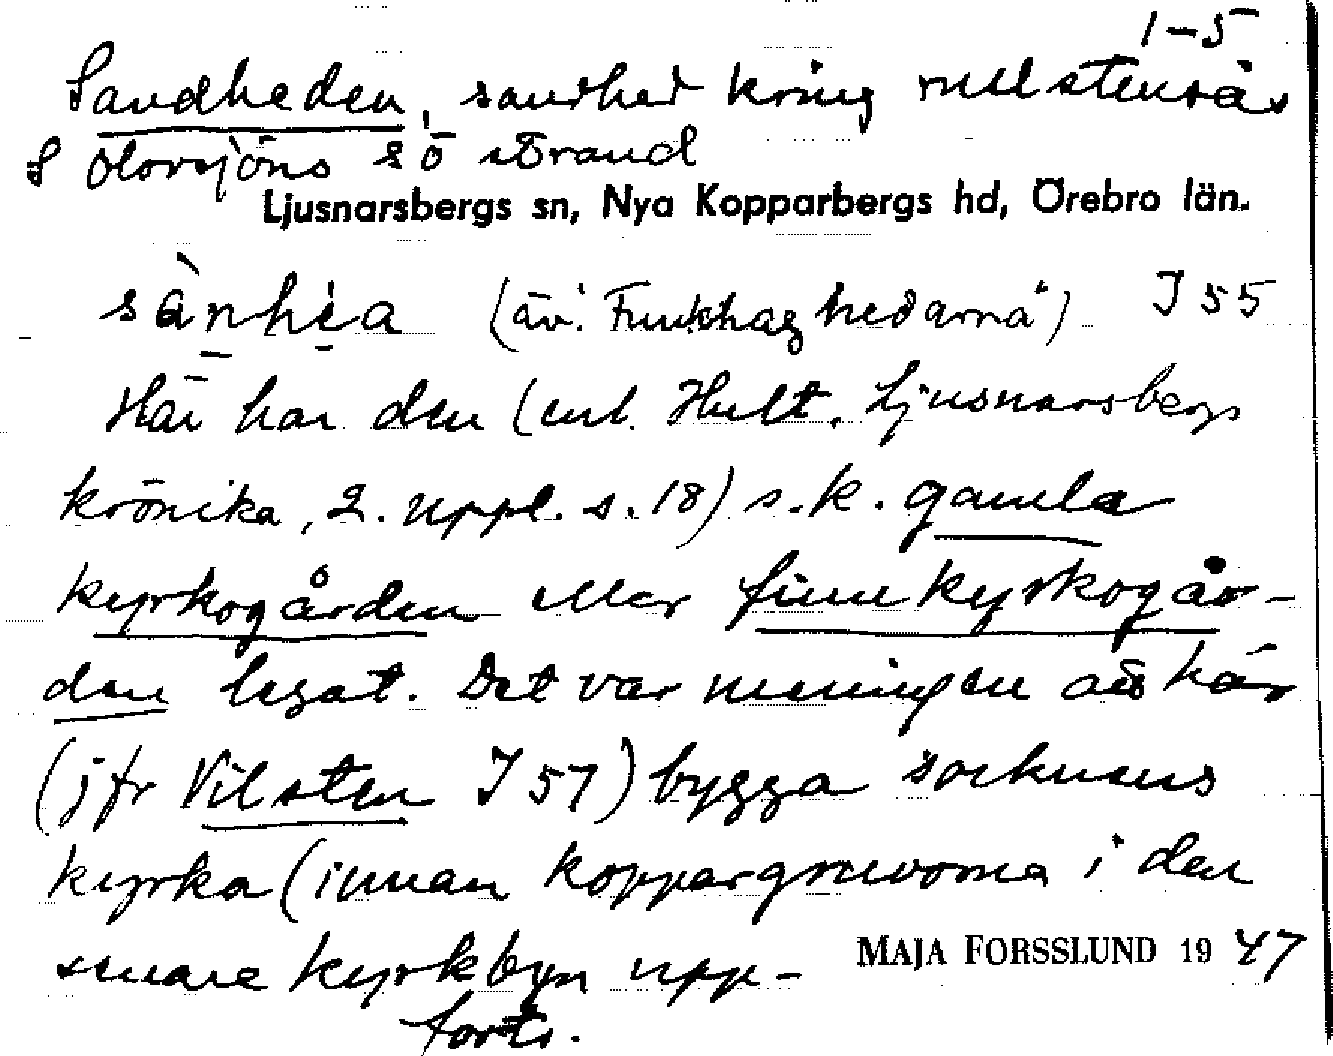 1-5
Sandheden, sandhed kring rullstensås
S Olovsjöns sö strand
Ljusnarsbergs sn, Nya Kopparbergs hd, Örebro län.
sànhéa (äv. "Funkhaghedarna") J 55
Här har den (enl. Hult. Ljusnarsbergs
krönika, 2. uppl. s. 18) s.k. gamla
kyrkogården eller finnkyrkogår-
den legat. Det var meningen att här
(jfr Vilsten J 57) bygga socknens
kyrka (innan koppargruvorna i den
senare kyrkbyn upp-
MAJA FORSSLUND 1947
forts.